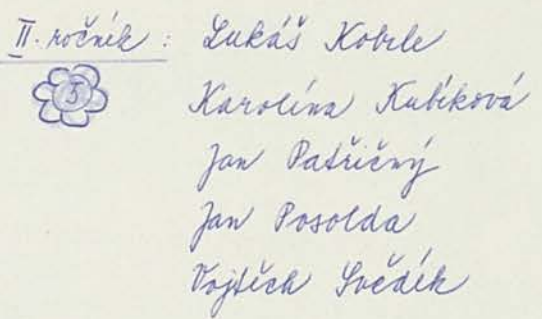 II. ročník : Lukáš Kobrle
5 Karolína Kubíková
Jan Patřičný
Jan Posolda
Vojtěch Svědík